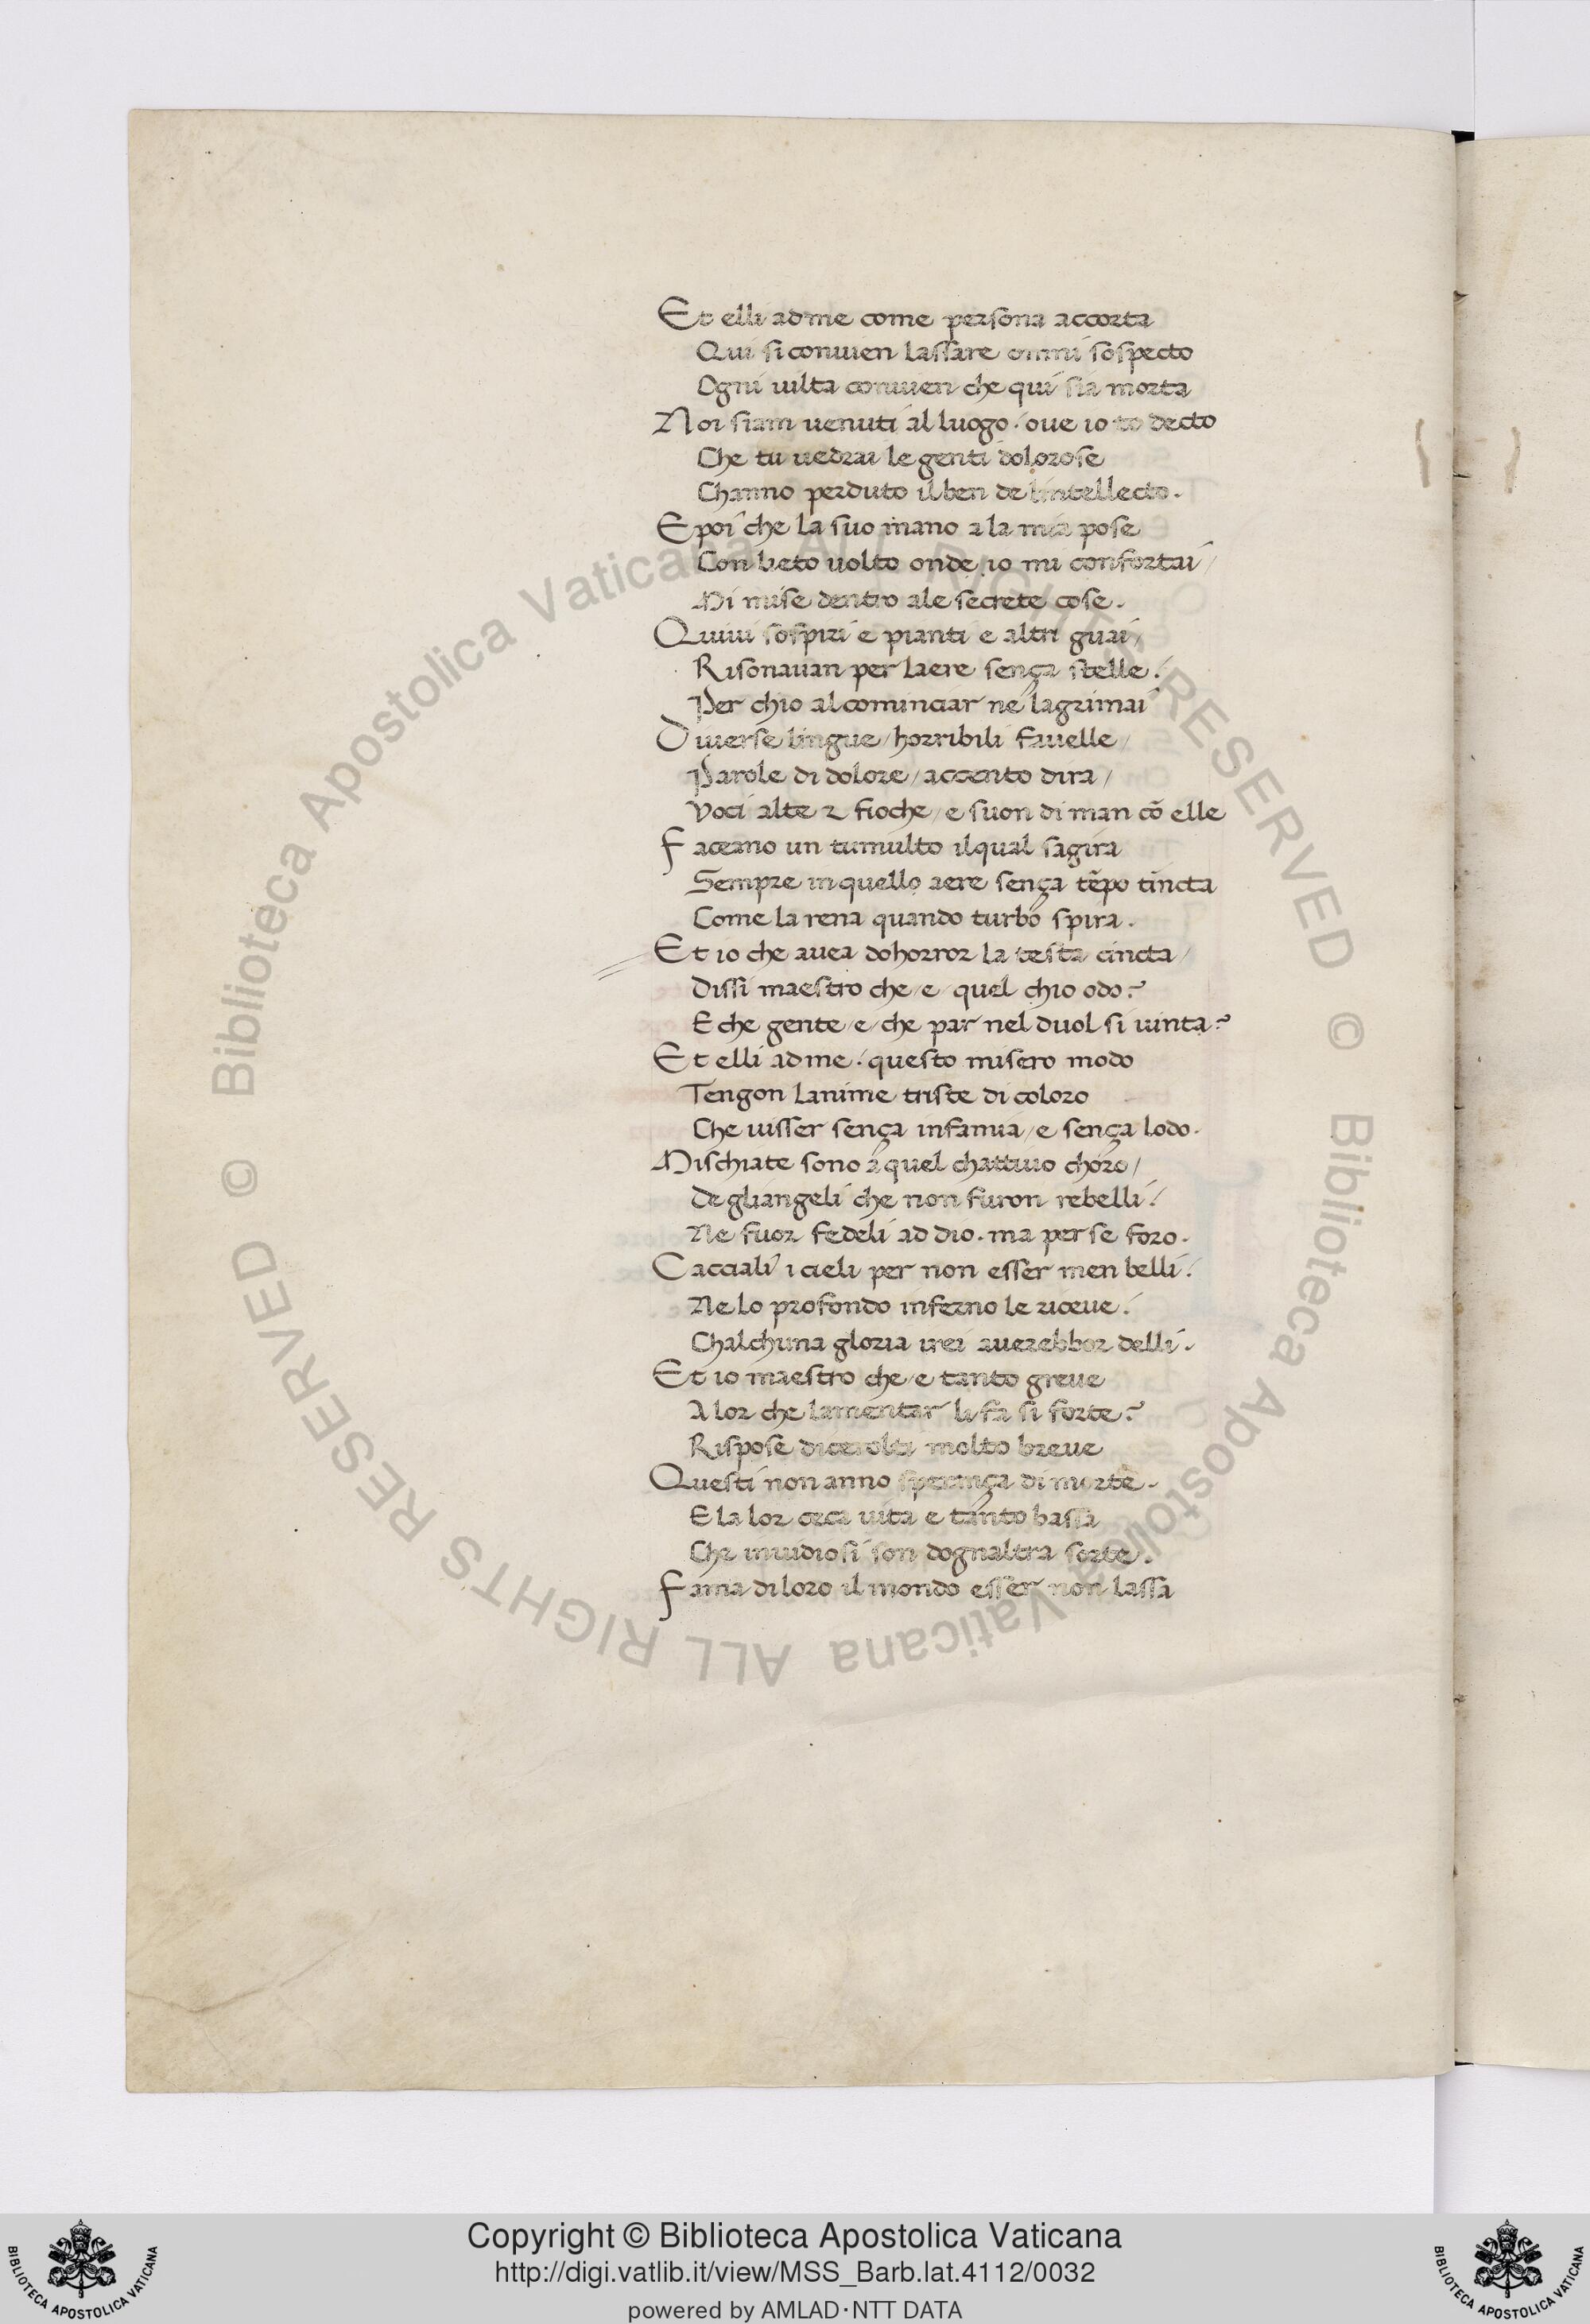 Et elli ad me come persona accorta
Qui si conuien lassare omni sospecto
Ogni uilta conuien che qui sia morta
Noi siam uenuti al luogo· oue io to decto
Che tu uedrai le genti dolorose
Channo perduto il ben de lintellecto·
E poi che la suo mano a la mia pose
Con lieto uolto onde io mi confortai/
Mi mise dentro ale secrete cose·
Quiui sospiri e pianti e altri guai/
Risonauan per laere sença stelle/
Per chio al cominciar ne lagrimai
Diuerse lingue/ horribili fauelle/
Parole di dolore/ accento dira/
Voci alte & fioche/ e suon di man cō elle
Faceano un tumulto ilqual sagira
Sempre in quello aere sença tēpo tincta
Come la rena quando turbo spira·
Et io che auea dohorror la testa cincta/
Dissi maestro che/ e/ quel chio odo?
E che gente/ e/ che par nel duol si uinta?
Et elli ad me· questo misero modo
Tengon lanime triste di coloro
Che uisser sença infamia/ e sença lodo·
Mischiate sono a quel chattiuo choro/
De gliangeli che non furon rebelli/
Ne fuor fedeli ad dio· ma per se foro·
Cacciali i cieli per non esser men belli/
Ne lo profondo inferno le riceue/
Chalchuna gloria irei auerebbor delli·
Et io maestro che/ e tanto greue
A lor che lamentar li fa si forte?
Rispose dicerolti molto breue
Questi non anno sperança di morte·
E la lor ceca uita e tanto bassa
Che inuidiosi son dognaltra sorte·
Fama di loro il mondo esser non lassa
© Biblioteca Apostolica Vaticana ALL RIGHTS RESERVED
© Biblioteca Apostolica Vaticana ALL RIGHTS RESERVED
BIBLIOTECA APOSTOLICA VATICANA
Copyright © Biblioteca Apostolica Vaticana
http://digi.vatlib.it/view/MSS_Barb.lat.4112/0032
powered by AMLAD·NTT DATA
BIBLIOTECA APOSTOLICA VATICANA